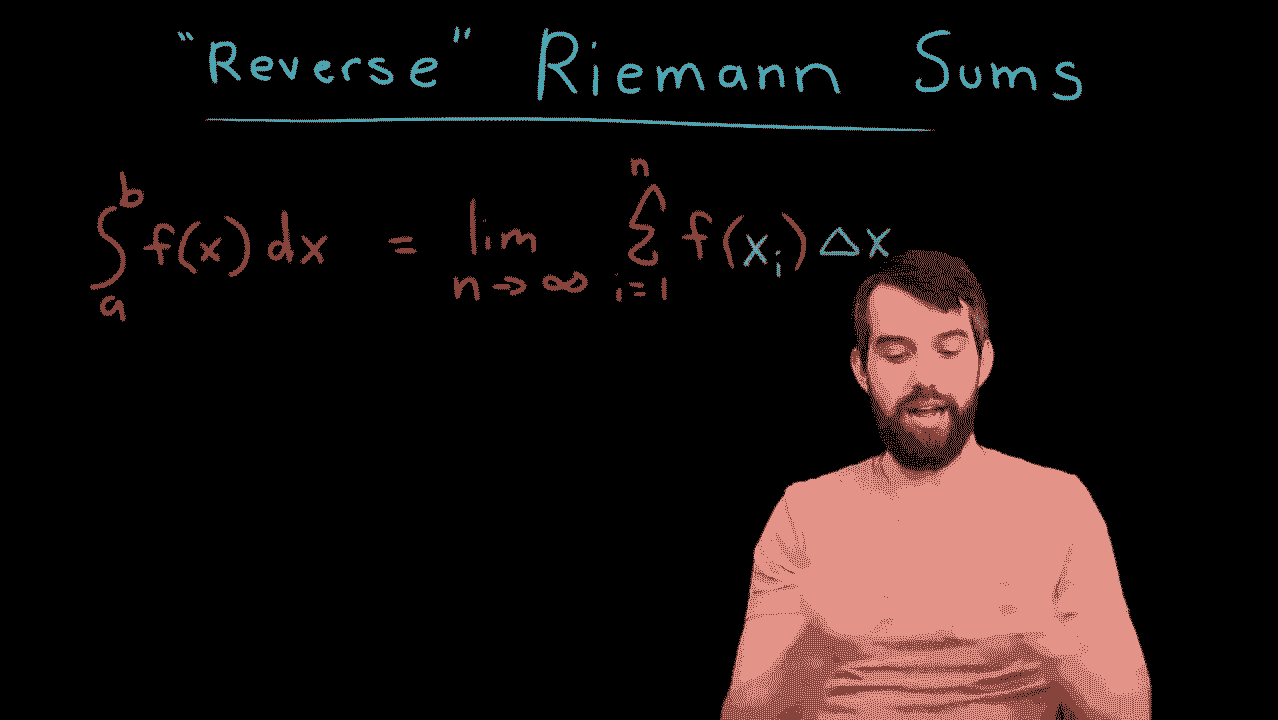 "Reverse" Riemann Sums
∫_a^b f(x) dx = lim_{n→∞} Σ_{i=1}^n f(x_i) Δx